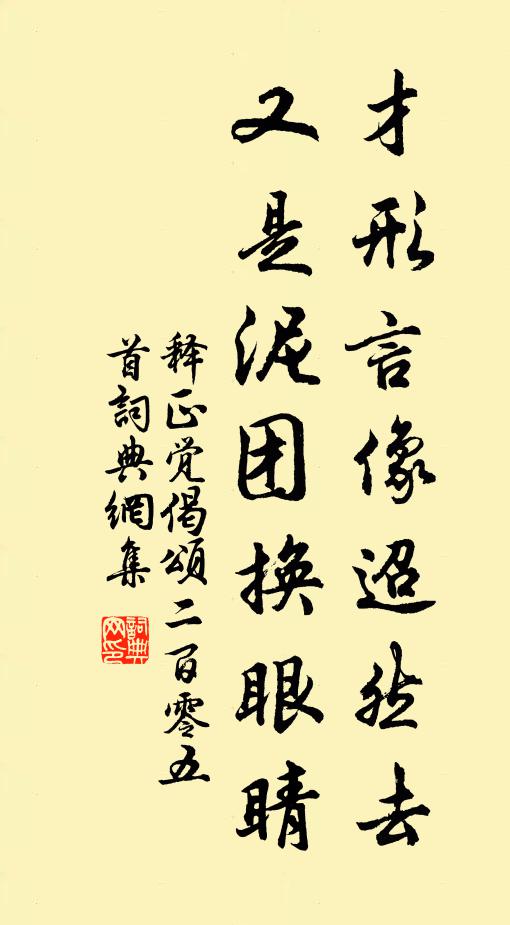 才形言像迢然去
又是泥团换眼睛
释正觉偈頌二百零五
首詞典網集
詞典
网印